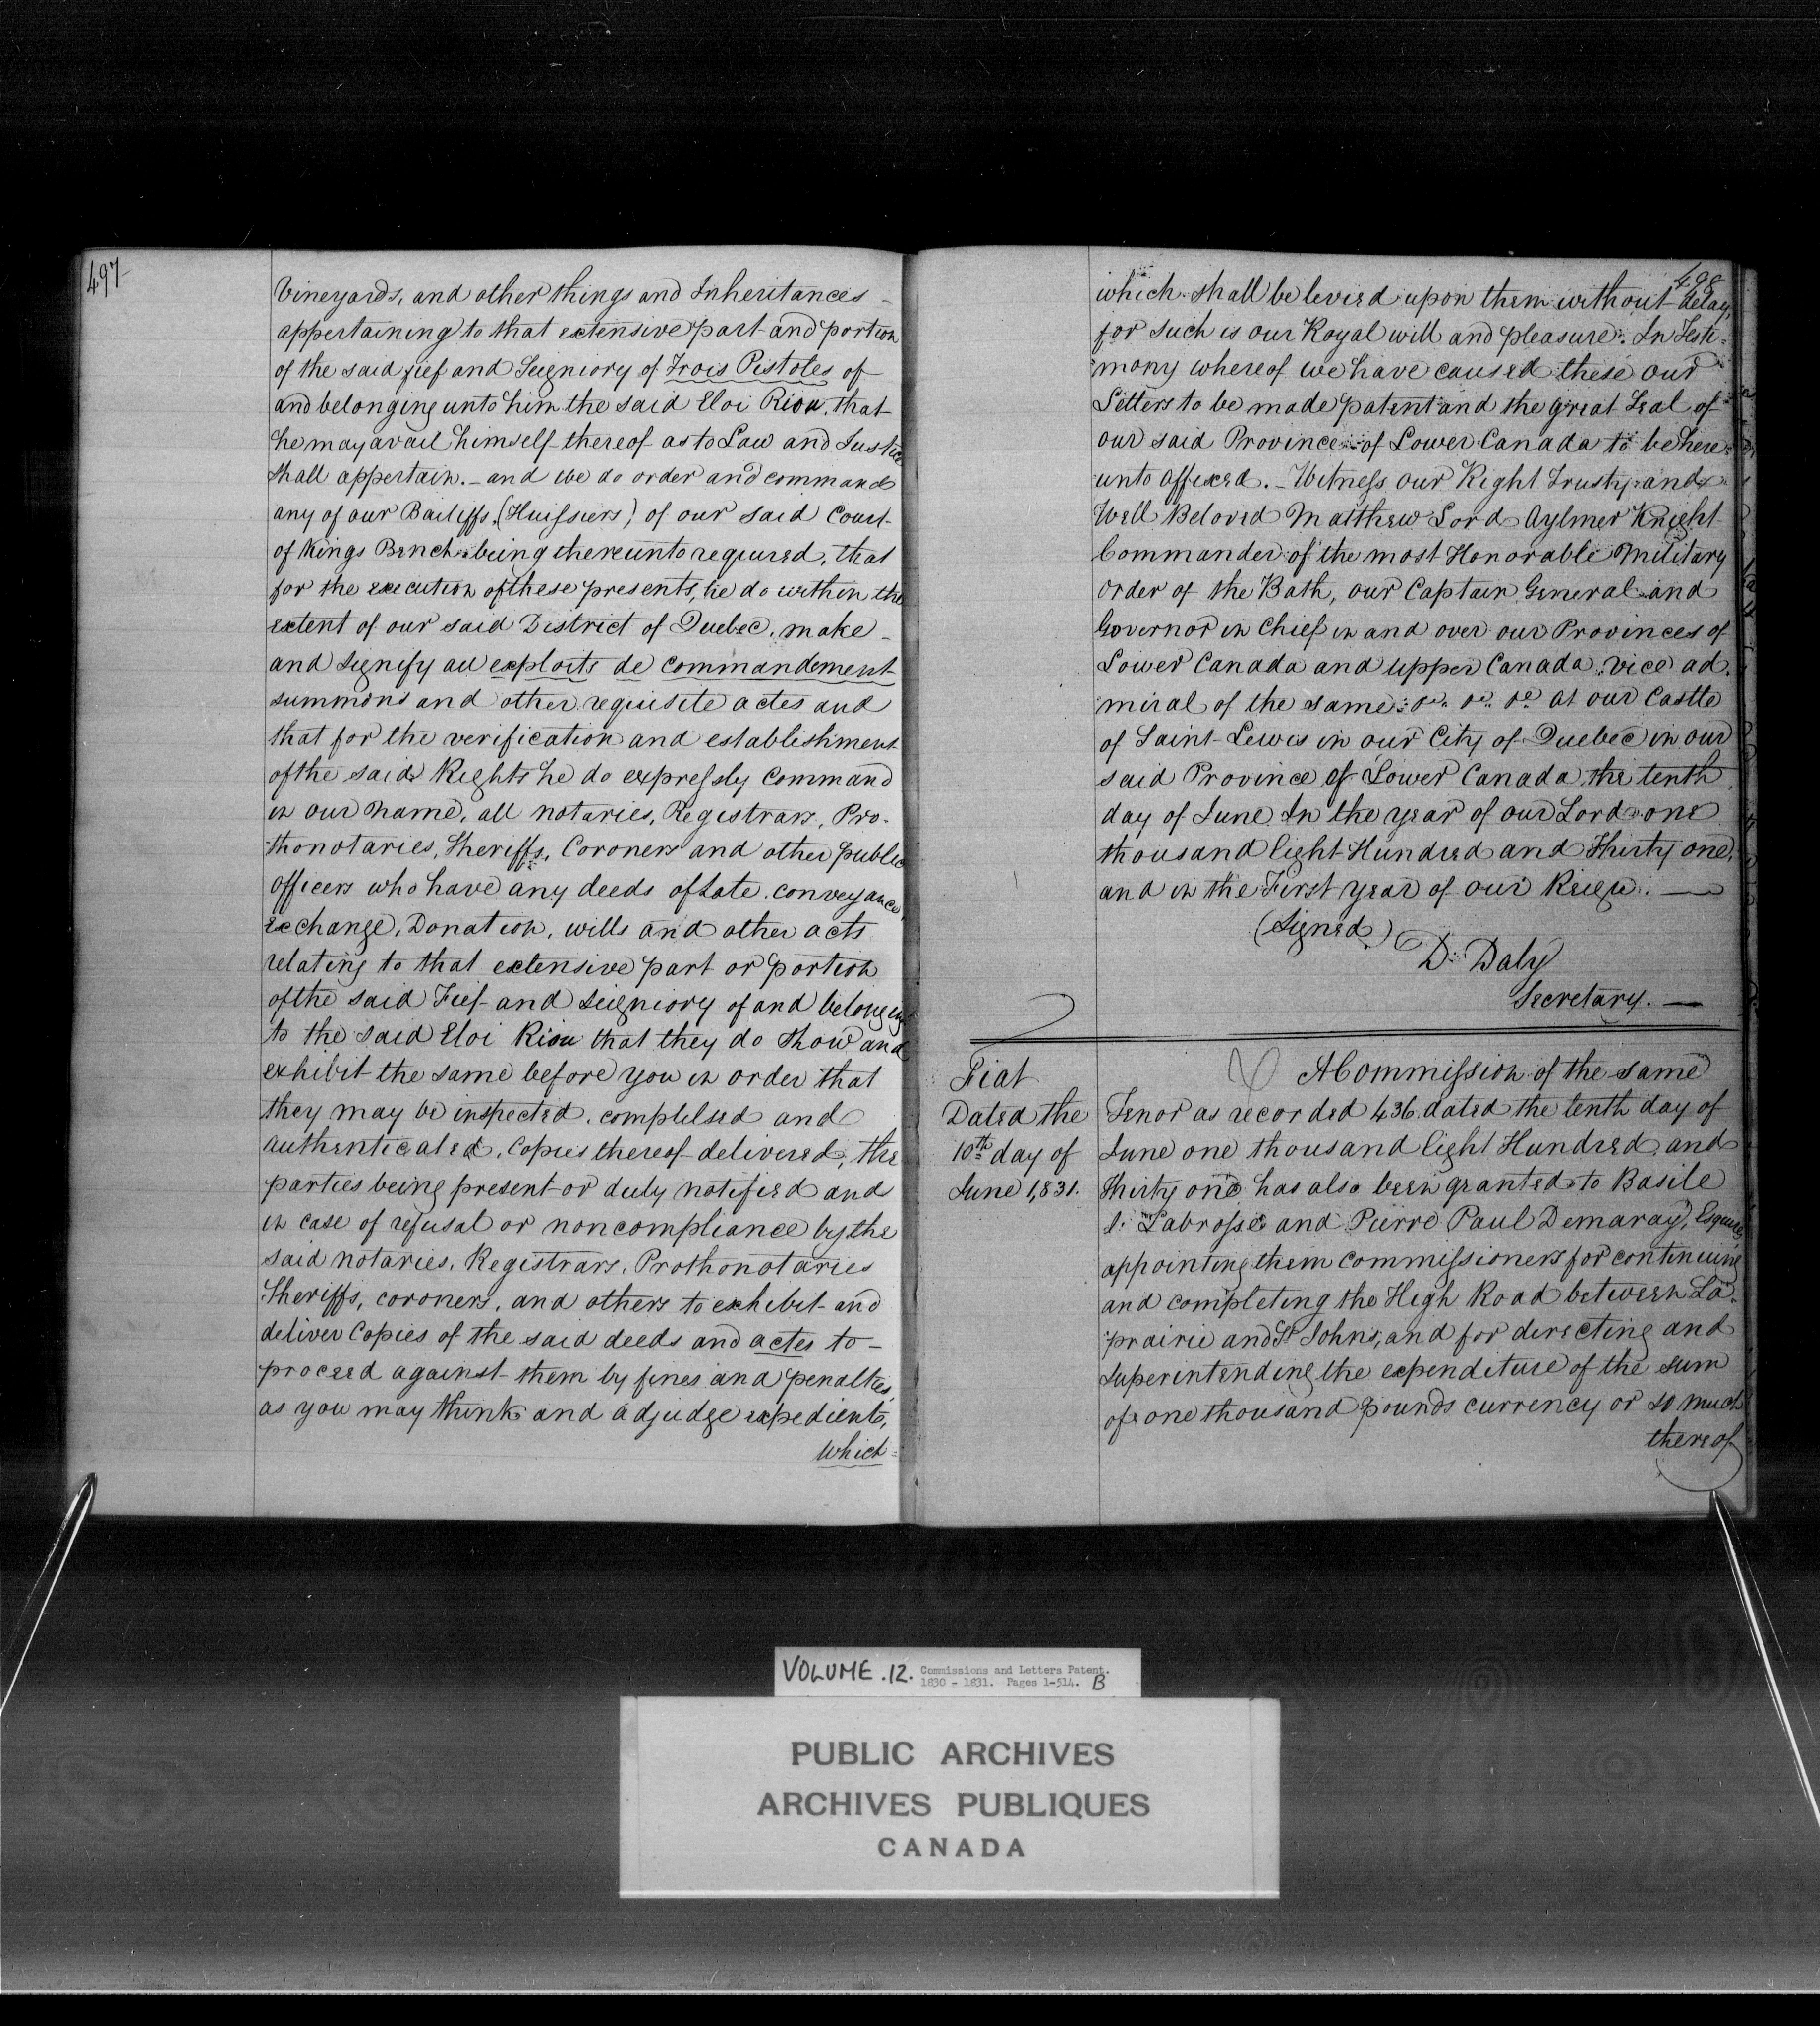 497
Vineyards, and other things and Inheritances -
appertaining to that extensive part and portion
of the said fief and Seigniory of Trois Pistoles of
and belonging unto him the said Eloi Riou, that
he may avail himself thereof as to Law and Justice
shall appertain. - and we do order and command
any of our Bailiffs, (Huissiers) of our said Court
of Kings Bench being thereunto required, that
for the execution of these presents, he do within the
extent of our said District of Quebec, make -
and signify all exploits de commandement
summons and other requisite actes and
that for the verification and establishment
of the said Rights he do expressly command
in our name, all notaries, Registrars, Pro-
thonotaries, Sheriffs, Coroners and other public
officers who have any deeds of Sale. conveyance,
exchange, Donation, wills and other acts
relating to that extensive part or portion
of the said Fief and Seigniory of and belonging
to the said Eloi Riou that they do show and
exhibit the same before you in order that
they may be inspected, compulsed and
authenticated, Copies thereof delivered, the
parties being present or duly notified and
in case of refusal or noncompliance by the
said notaries, Registrars, Prothonotaries
Sheriffs, coroners, and others to exhibit and
deliver Copies of the said deeds and actes to -
proceed against them by fines and penalties,
as you may think and adjudge expedient,
which
498
which shall be levied upon them without delay,
for such is our Royal will and pleasure. In Testi-
mony whereof we have caused these our
Letters to be made patent and the great Seal of
our said Province of Lower Canada to be here-
unto affixed. - Witness our Right Trusty and
Well Beloved Matthew Lord Aylmer Knight
Commander of the most Honorable Military
order of the Bath, our Captain General and
Governor in Chief in and over our Provinces of
Lower Canada and upper Canada, vice ad-
miral of the same at our Castle
of Saint Lewis in our City of Quebec in our
said Province of Lower Canada the tenth
day of June In the year of our Lord one
thousand Eight Hundred and Thirty one,
and in the First year of our Reign. —
(Signed)
D. Daly
Secretary. —
Fiat
Dated the
10th day of
June 1,831.
A Commission of the same
Tenor as recorded 436 dated the tenth day of
June one thousand Eight Hundred and
Thirty one has also been granted to Basile
Labrosse and Pierre Paul Demaray, Esquires
appointing them commissioners for continuing
and completing the High Road between La-
prairie and St Johns, and for directing and
Superintending the expenditure of the sum
of one thousand pounds currency or so much
thereof
VOLUME .12. Commissions and Letters Patent.
1830 - 1831. Pages 1-514. B
PUBLIC ARCHIVES
ARCHIVES PUBLIQUES
CANADA